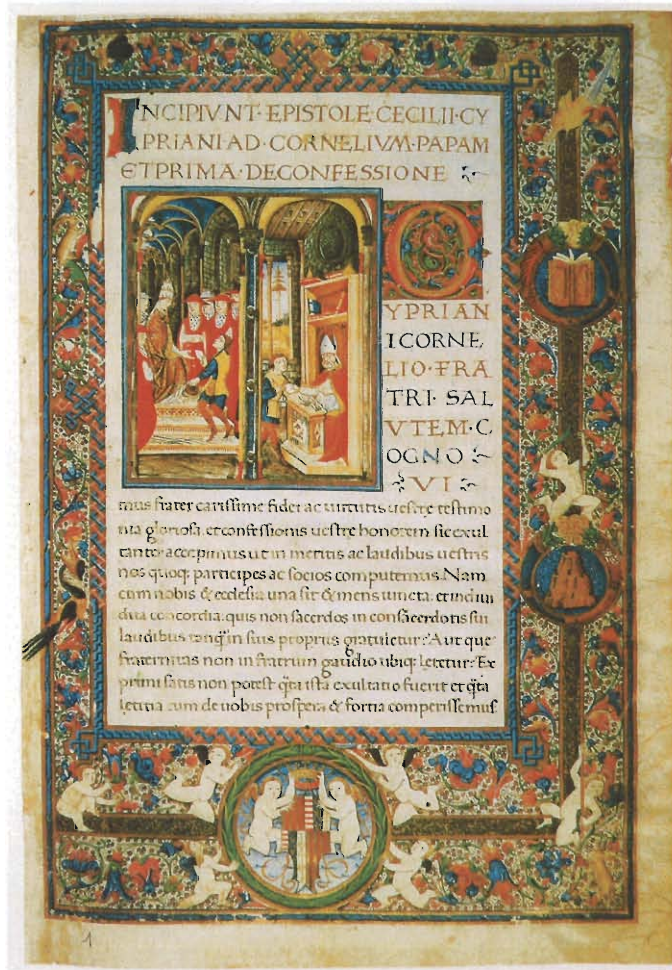 INCIPIVNT·EPISTOLE·CECILII·CY
PRIANI AD·CORNELIVM·PAPAM
ET PRIMA·DE CONFESSIONE
CYPRIAN
I CORNE,
LIO·FRA
TRI·SAL
VTEM·C
OGNO
VI
mus frater carissime fidei ac uirtutis uestre testimo
nia gloriosa. et confessionis uestre honorem sic exul
tanter accepimus ut in meritis ac laudibus uestris
nos quoq; participes ac socios computemus. Nam
cum nobis & ecclesia una sit & mens iuncta. et indiui
dua concordia. quis non sacerdos in consacerdotis sui
laudibus tanq̄ in suis propriis gratuletur? Aut que
fraternitas non in fratrum gaudio ubiq; letetur? Ex
primi satis non potest q̄ta ista exultatio fuerit et q̄ta
letitia cum de uobis prospera & fortia comperissemus
1